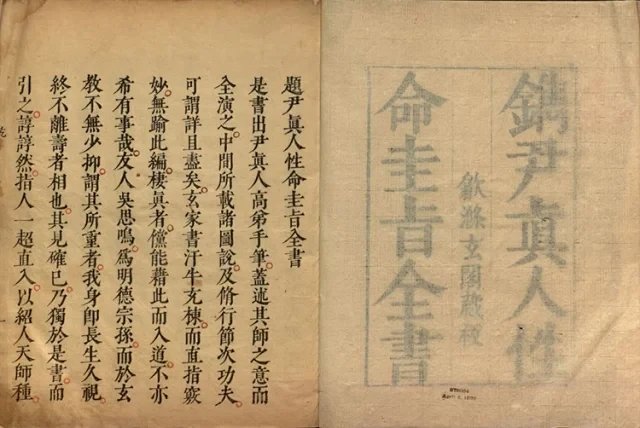 鐫尹眞人性
歙滌玄閣藏板
命圭旨全書
題尹眞人性命圭旨全書
是書出尹眞人高弟手筆。蓋述其師之意而
全演之。中間所載諸圖說。及脩行節次功夫。
可謂詳且盡矣。玄家書汗牛充棟。而直指竅
妙。無踰此編。棲眞者。儻能藉此而入道。不亦
希有事哉。友人吳思鳴。爲明德宗孫。而於玄
教不無少抑。謂其所重者。我身卽長生久視。
終不離壽者相也。其見確已。乃獨於是書而
引之。諄諄然。指人一超直入。以紹人天師種。